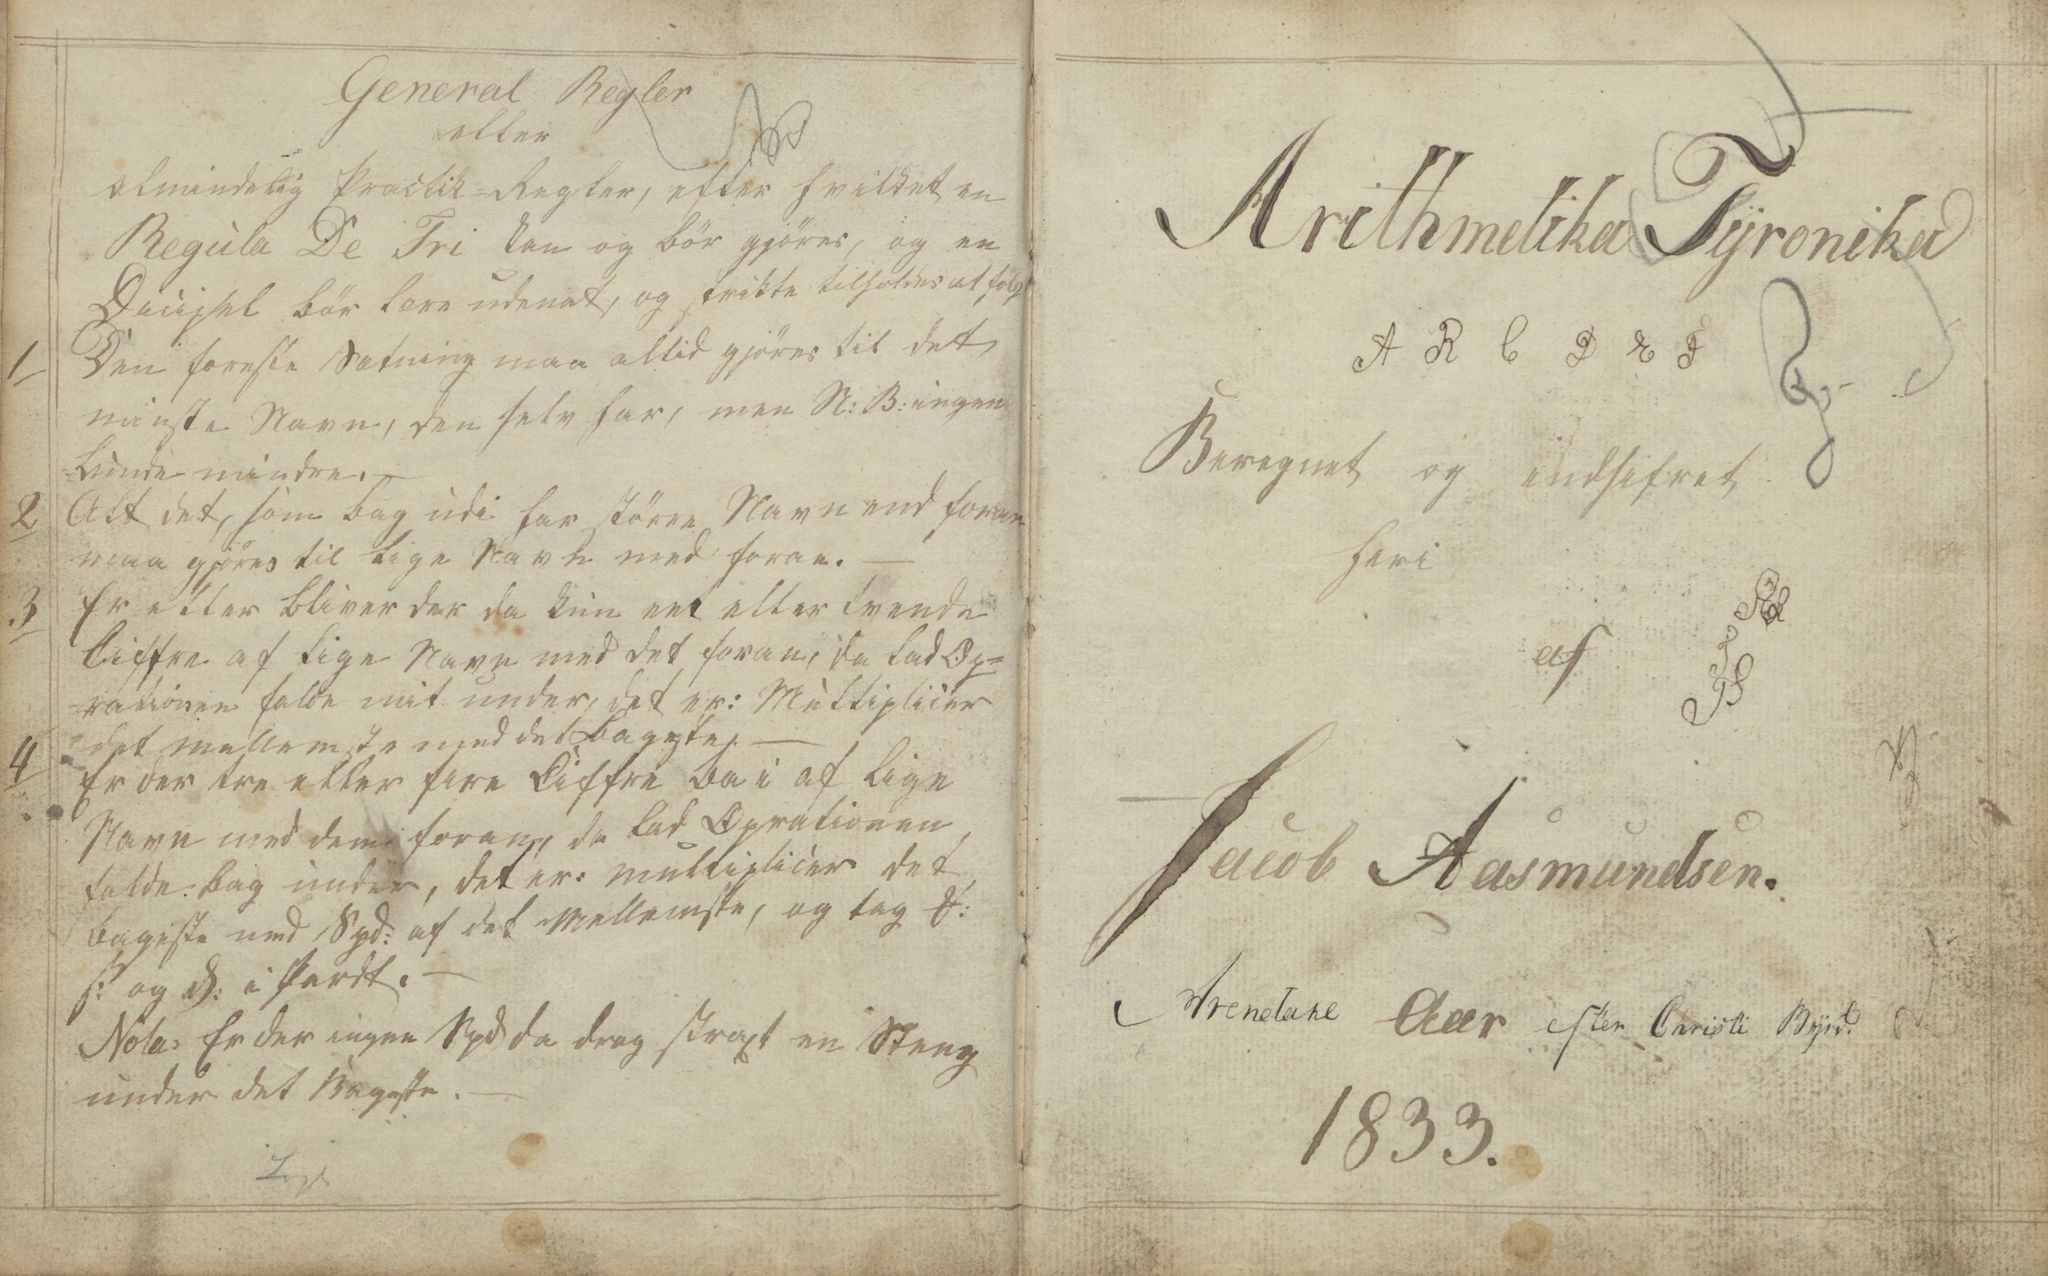 General Regler
eller
almindelig Practik-Regler, efter hvilket en
Regula De Tri kan og bör gjöres, og en
Dicipel bör lære udenat, og strikte tilholdes at fölge
1 Den foreste Satning maa altid gjöres til det
minste Navn, den selv har, men N: B: ingen
lunde mindre. —
2 Alt det, som bag udi har större Navn end foran
maa gjöres til lige Navn med foran. —
3 Er eller bliver der da kun eet eller tvende
Ciffre af lige Navn med det foran, da lad Op-
-rationen falde mit under, det er: Multiplicer
det mellemste med det bageste. —
4 Er der tre eller fire Ciffre ba i af lige
Navn med dem foran, da lad Oprationen
falde bag under, det er: multiplicer det
bageste med Spd: af det Mellemste, og tag
og i Pardt. —
Nota: Er der ingen Spd da drag strax en Streng
under det Bageste. —
Arithmetika Tÿronika
A R C D
Beregnet og indsifret
heri
af
Jacob Aasmundsen.
Aar efter Christi Byrd.
1833.